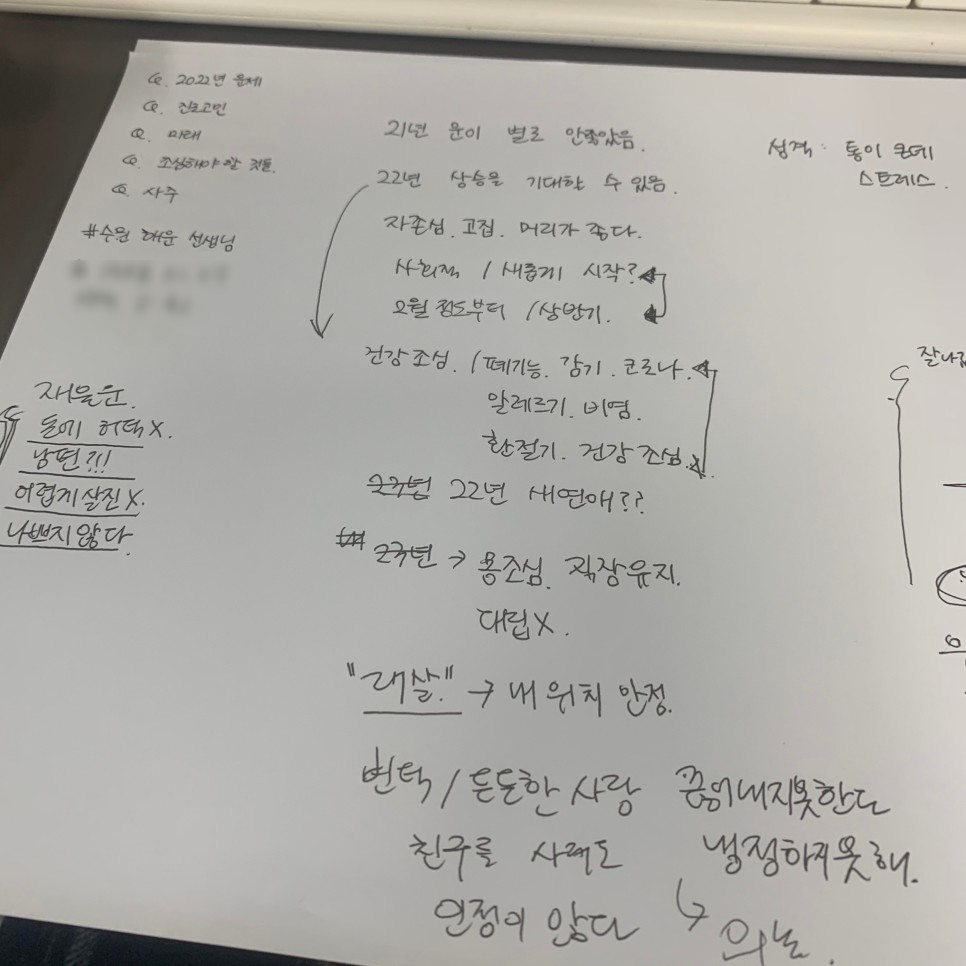 Q. 2022년 운세
Q. 진로고민
Q. 미래
Q. 조심해야 할 것들.
Q. 사주
#수원 대운 선생님
재물운.
돈에 허덕X.
남편?!!
어렵게 살진 X.
나쁘지 않다.
21년 운이 별로 안좋았음.
22년 상승을 기대할 수 있음.
자존심. 고집. 머리가 좋다.
사회적 / 새롭게 시작?
2월 정도부터 /상반기.
건강 조심. /폐기능. 감기. 코로나.
알레르기. 비염.
환절기. 건강 조심.
22년 새연애??
→ 용조심. 직장유지.
대립X.
→ 내 위치 안정.
변덕 / 든든한 사랑 끊어내지못한다
친구를 냉정하지못해.
인정이 많다
성격: 통이 큰데
스트레스.